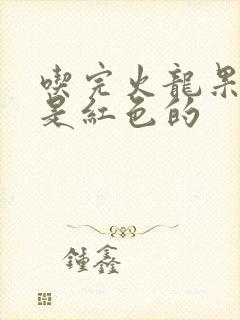 喫完火龍果
是紅色的
鍾鑫